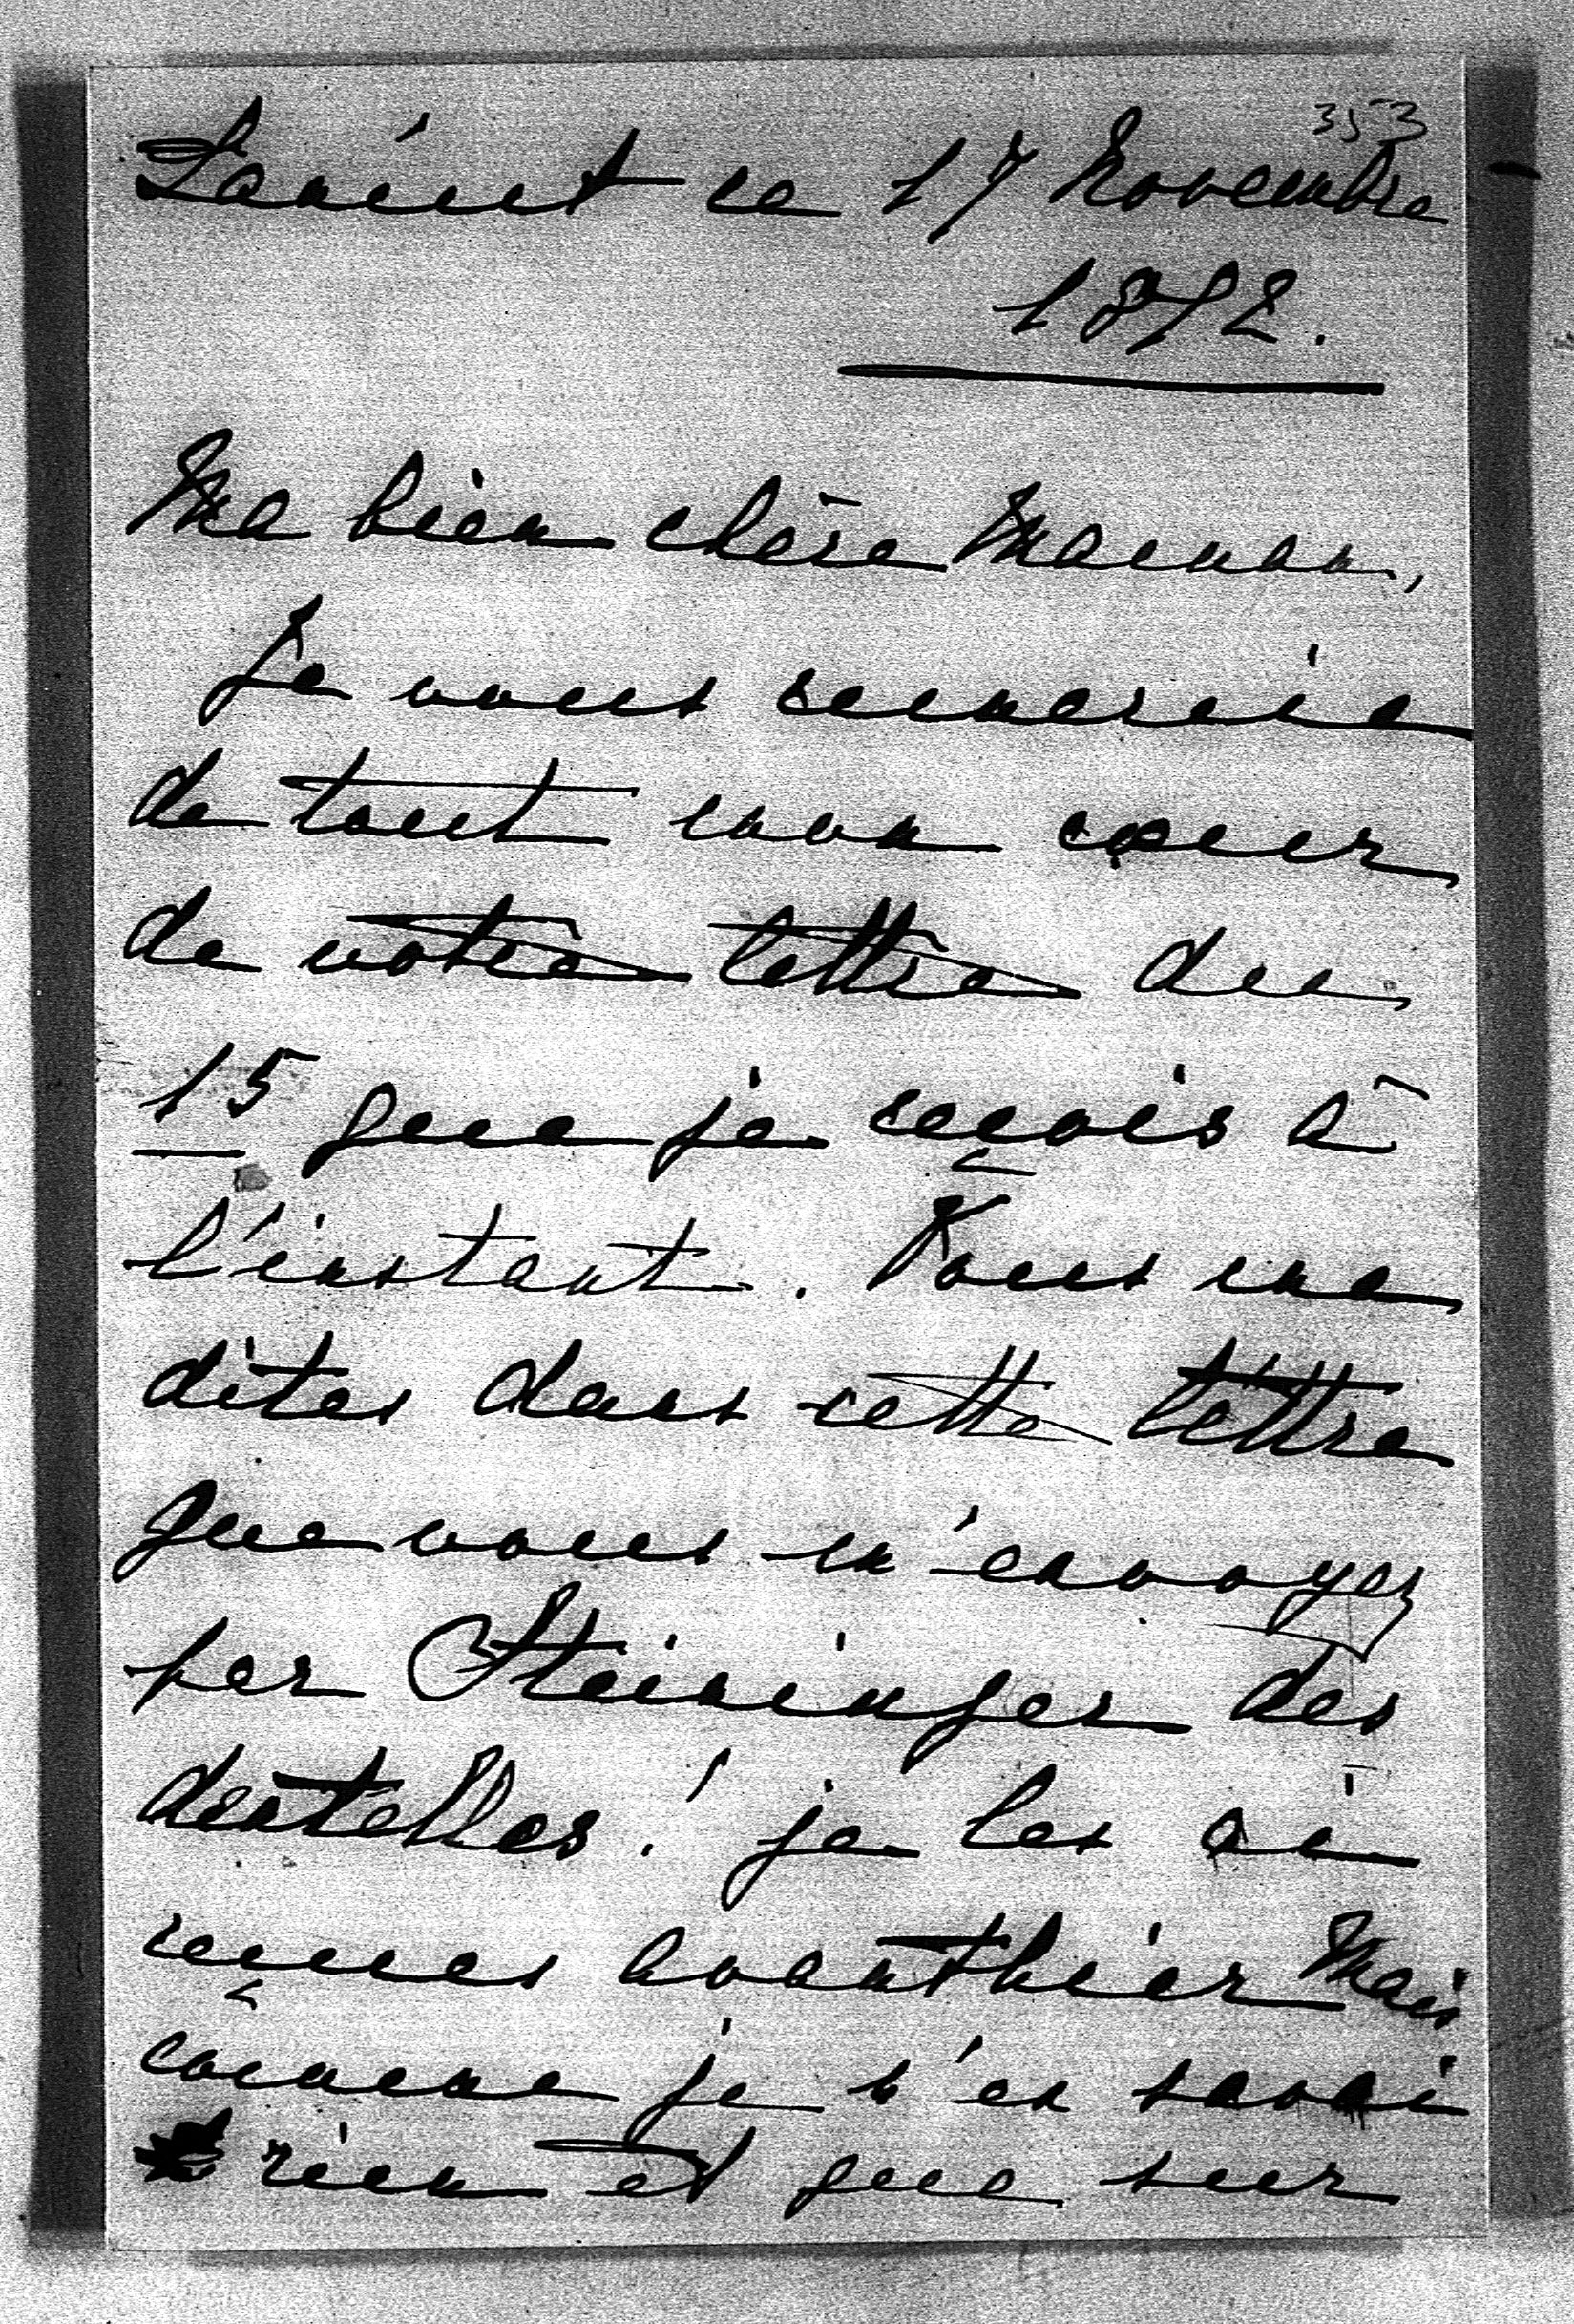 353
Laeint ce 17 Novembre
1872.
Ma bien chère Maman,
Je vous remercie
de tout mon coeur
de votre lettre du
15 que je reçois à
l'instant. Vous me
dites dans cette lettre
que vous m'envoyez
par Steininger des
dentelles! je les ai
reçues avanthier Mais
comme je n'en savai
rien et que sur